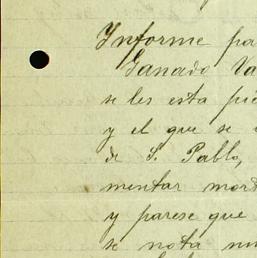 Informe pa
Ganado Va
se les esta pi
y el que se
de S. Pablo,
mentar mort
y parese que
se nota mu